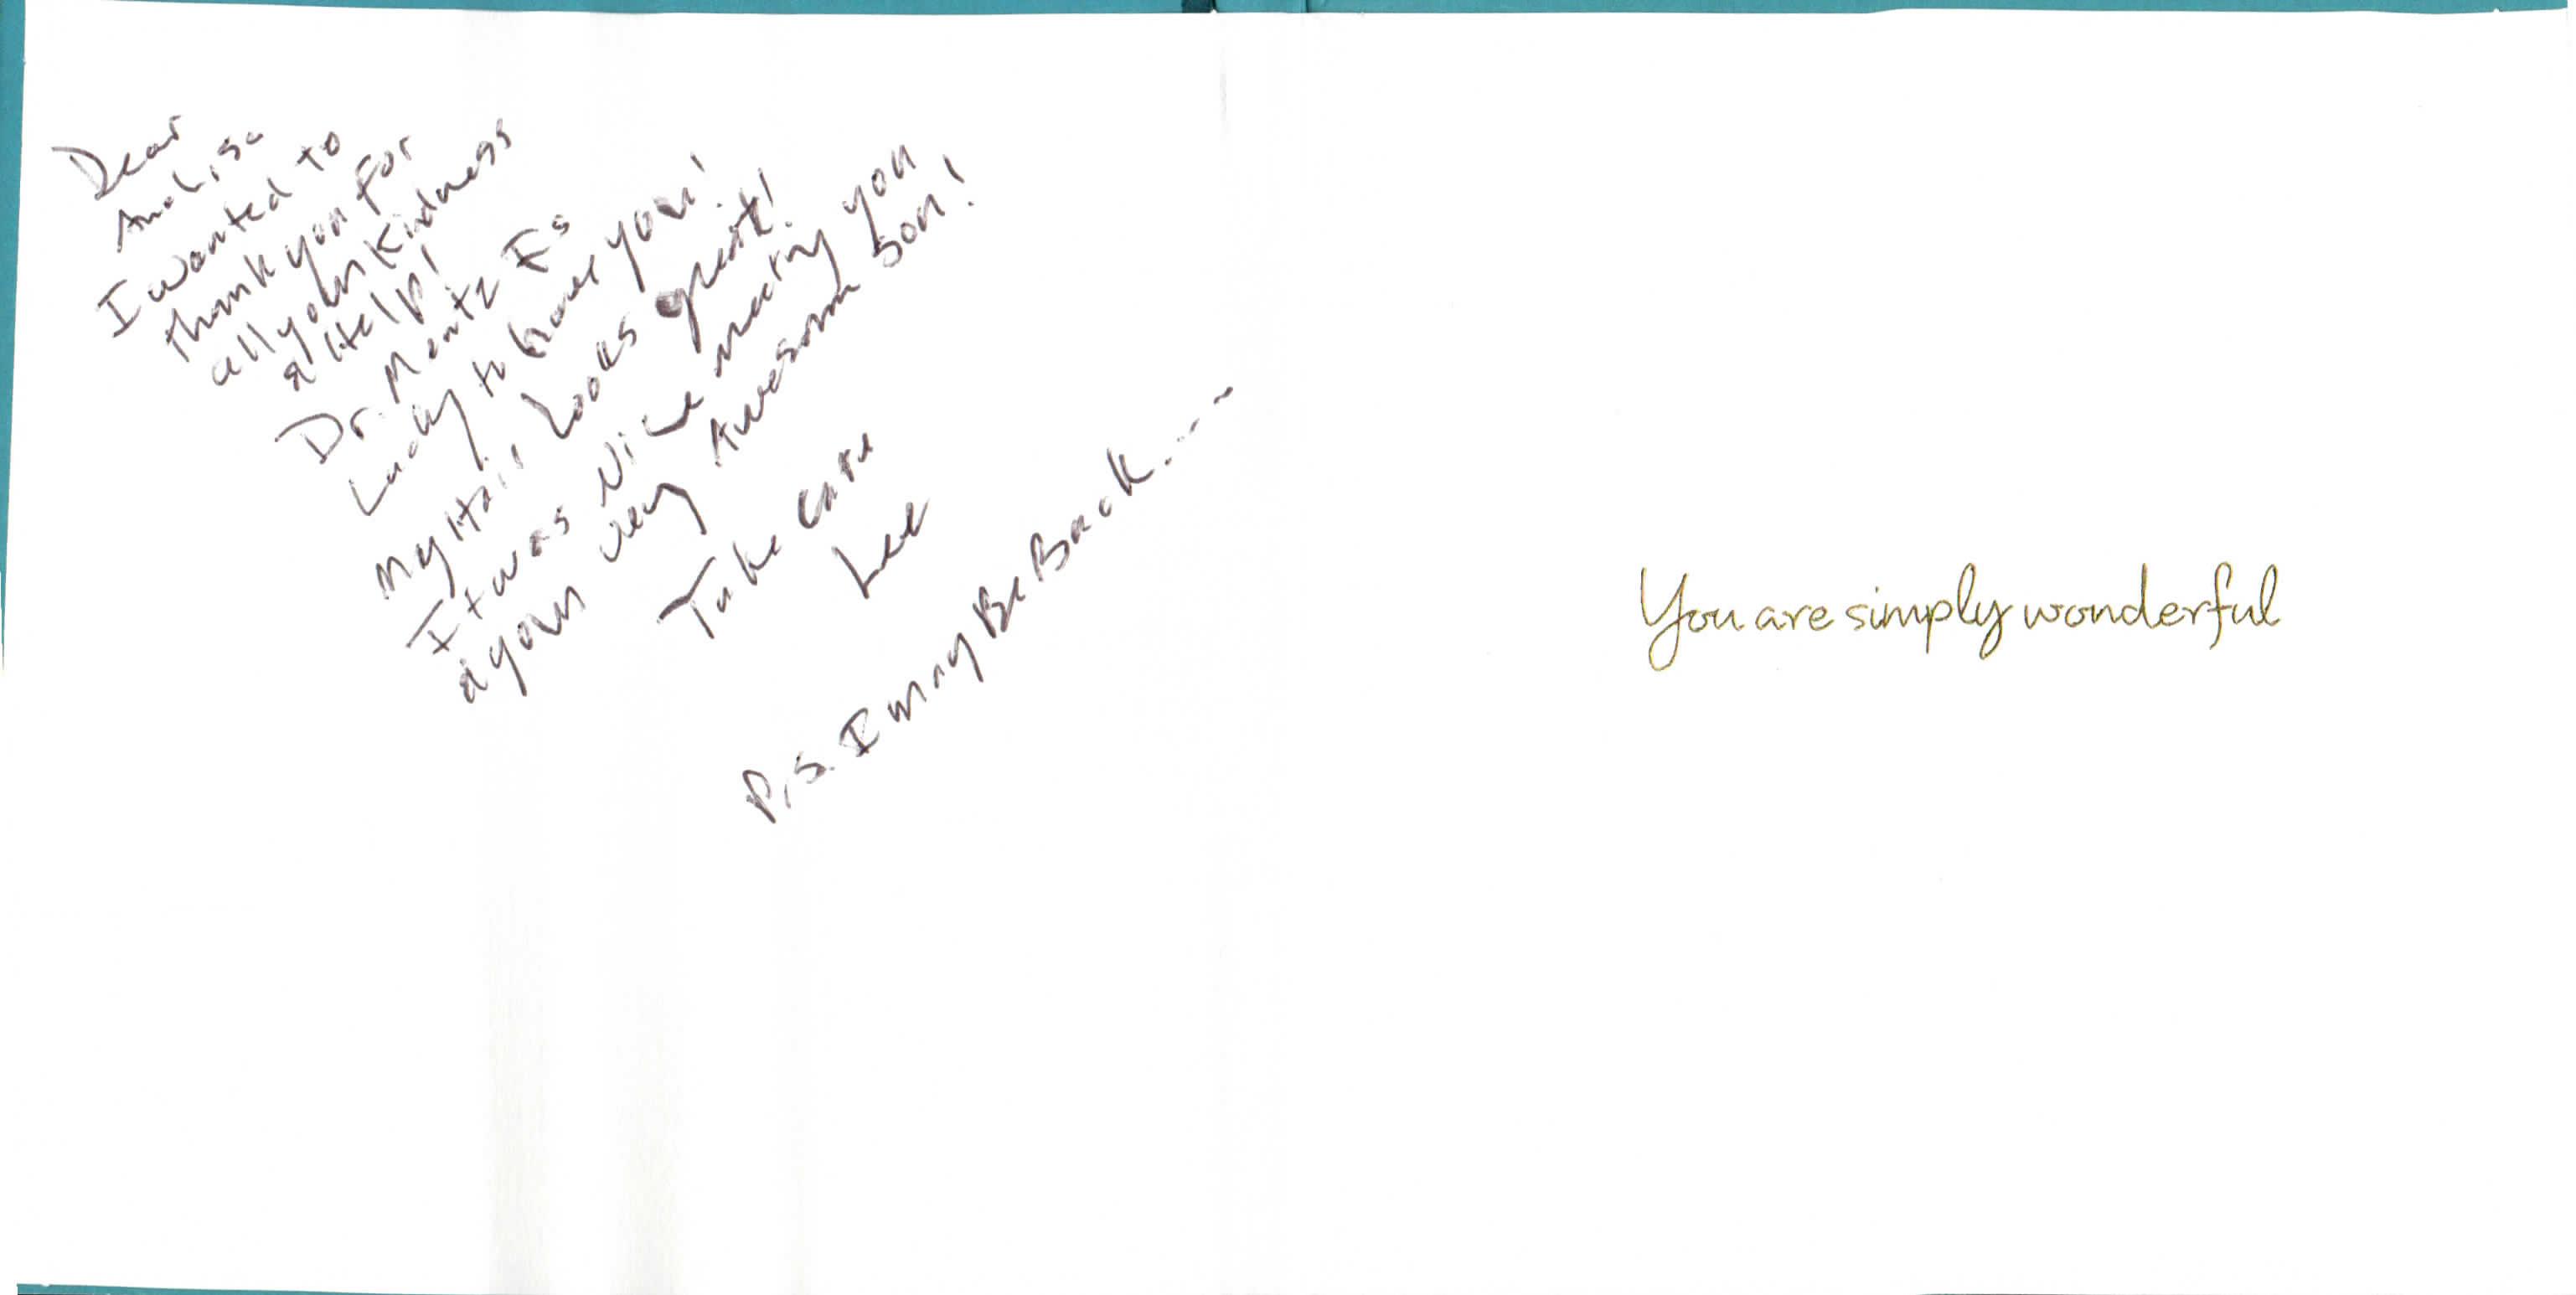 Dear
Analisa
I wanted to
thank you for
all your Kindness
& Help!
Dr. Mentz Is
Lucky to have you!
My Hair Looks great!
It was Nice meeting you
& your very Awesome Son!
Take care
Lee
P.S. I may Be Back....--
You are simply wonderful